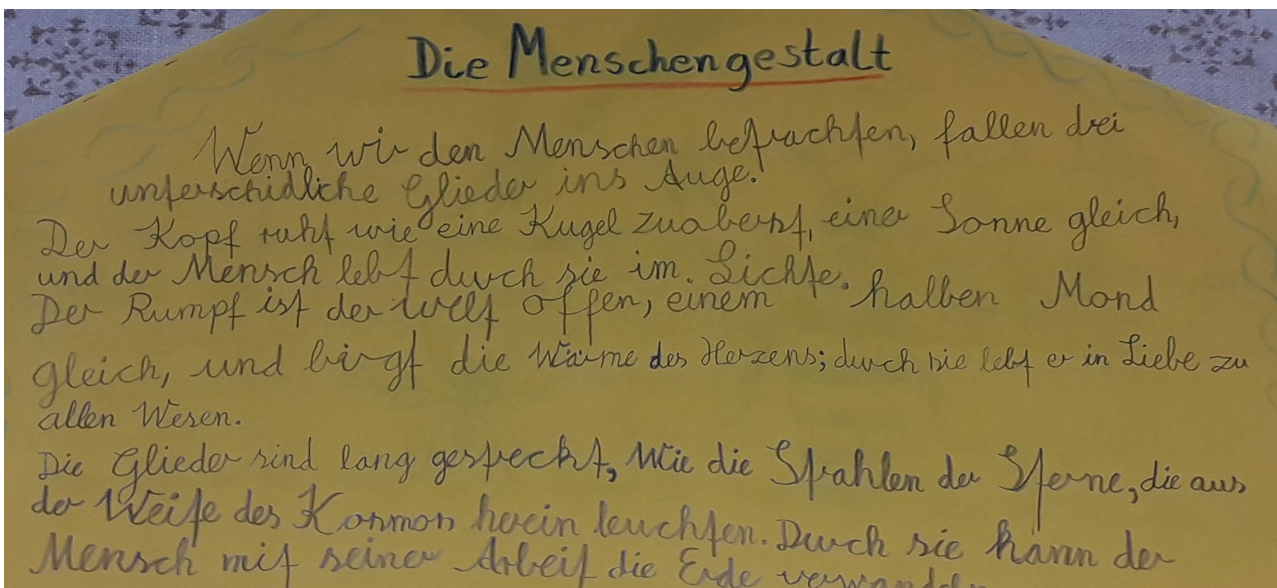 Die Menschengestalt
Wenn wir den Menschen betrachten, fallen drei
unterschidliche Glieder ins Auge.
Der Kopf ruht wie eine Kugel zuoberst, einer Sonne gleich,
und der Mensch lebt durch sie im. Lichte.
Der Rumpf ist der Welt offen, einem halben Mond
gleich, und birgt die Wärme des Herzens; durch sie lebt er in Liebe zu
allen Wesen.
Die Glieder sind lang gestreckt, Wie die Strahlen der Sterne, die aus
der Weite des Kosmos herein leuchten. Durch sie kann der
Mensch mit seiner Arbeit die Erde verwandeln